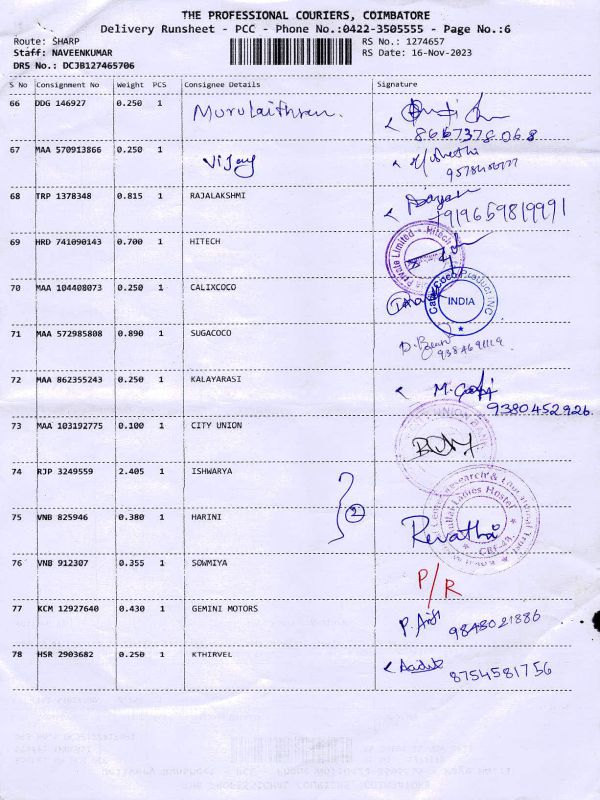 THE PROFESSIONAL COURIERS, COIMBATORE
Delivery Runsheet - PCC - Phone No.:0422-3505555 - Page No.:6
Route: SHARP
Staff: NAVEENKUMAR
DRS No.: DCJB127465706
RS No.: 1274657
RS Date: 16-Nov-2023
S No Consignment No Weight PCS Consignee Details Signature
66 DDG 146927 0.250 1
8667378068
67 MAA 570913866 0.250 1 Vijay
68 TRP 1378348 0.815 1 RAJALAKSHMI
+919659819991
69 HRD 741090143 0.700 1 HITECH
Private Limited Hitech
70 MAA 104408073 0.250 1 CALIXCOCO
INDIA
71 MAA 572985808 0.890 1 SUGACOCO
9384691119
72 MAA 862355243 0.250 1 KALAYARASI M. Gopi
9380452926
73 MAA 103192775 0.100 1 CITY UNION
74 RJP 3249559 2.405 1 ISHWARYA
2
75 VNB 825946 0.380 1 HARINI Revathi
76 VNB 912307 0.355 1 SOWMIYA P/R
77 KCM 12927640 0.430 1 GEMINI MOTORS 9843021886
78 HSR 2903682 0.250 1 KTHIRVEL 8754581756